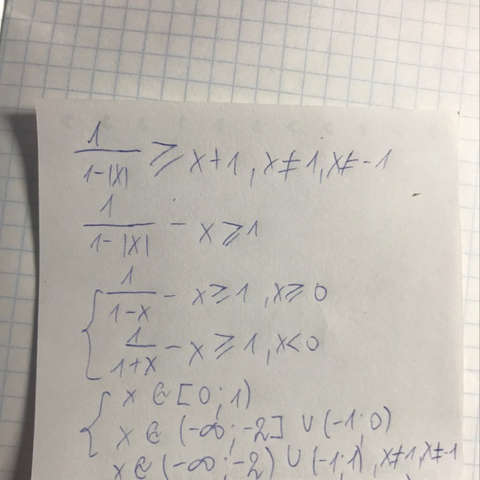 1/(1-|x|) ≥ x+1, x≠1, x≠-1
1/(1-|x|) - x ≥ 1
{ 1/(1-x) - x ≥ 1, x ≥ 0
1/(1+x) - x ≥ 1, x < 0
{ x ∈ [0; 1)
x ∈ (-∞; -2] ∪ (-1; 0)
x ∈ (-∞; -2) ∪ (-1; 1), x≠1, x≠-1